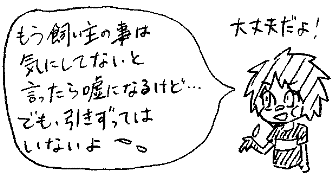 大丈夫だよ!
もう飼い主の事は
気にしてないと
言ったら嘘になるけど…
でも、引きずっては
いないよ